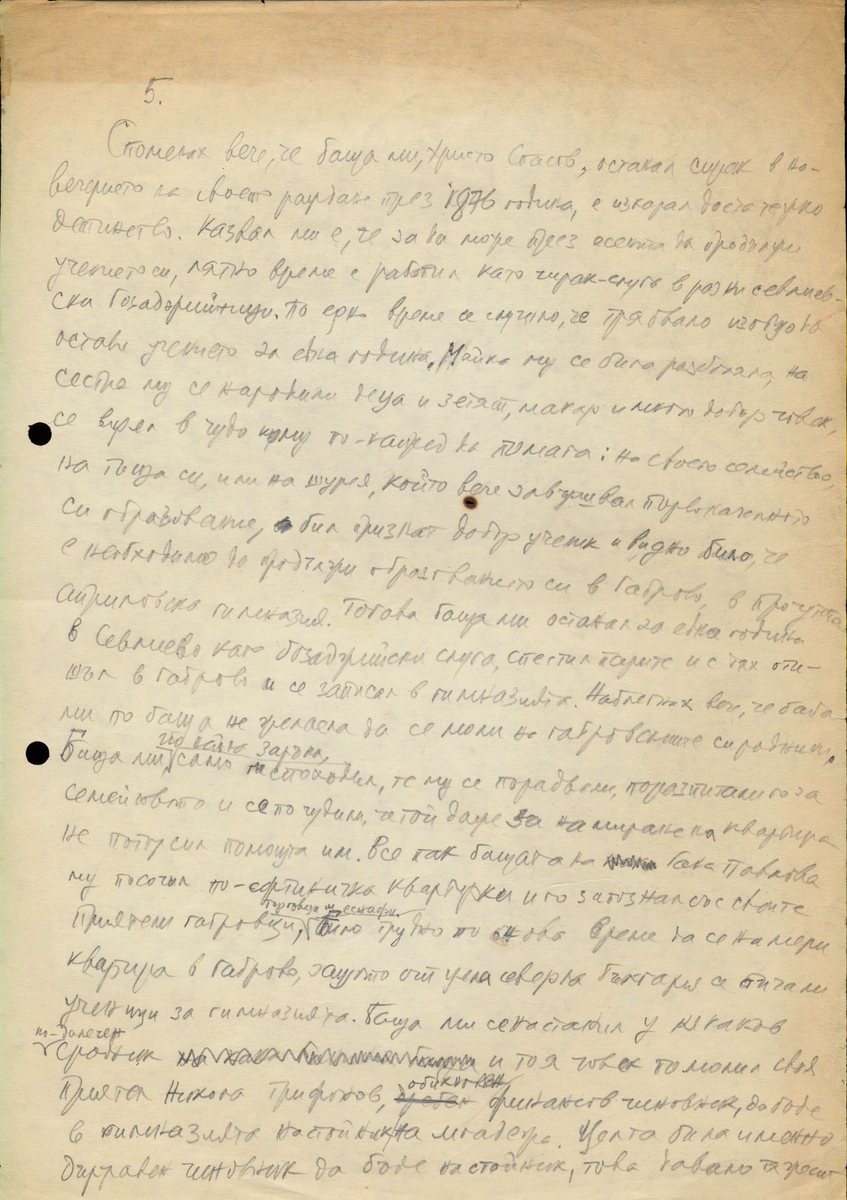 5.
Споменах вече, че баща ми, Христо Спасов, останал сирак в на-
вечерието на своето раждане през 1876 година, е изкарал доста тежко
детинство. Казвал ми е, че за да може през есента да продължи
учението си, лятно време е работил като чирак-слуга в разни севлиев-
ски бозаджийници. По едно време се случило, че трябвало изобщо да
остави учението за една година. Майка му се била разболяла, на
сестра му се народили деца и зетят, макар и много добър човек,
се видял в чудо кому по-напред да помага: на своето семейство,
на тъща си, или на шурея, който вече завършвал първоначалното
си образование, бил признат добър ученик и видно било, че
е необходимо да продължи образованието си в Габрово, в прочутата
Априловска гимназия. Тогава баща ми останал за една година
в Севлиево като бозаджийски слуга, спестил парите и с тях оти-
шъл в Габрово и се записал в гимназията. Наблегнах вече, че баба
ми по баща не желаела да се моли на габровските си роднини.
по нейна заръка,
Баща ми само ги споходил, те му се порадвали, поразпитали го за
семейството и се почудили, че той даже за намиране на квартира
не потърсил помощта им. Все пак бащата на Гана Павлова
му посочил по-евтиничка квартирка и го запознал със своите
търговци и еснафи.
приятели габровци, Било трудно по онова време да се намери
квартира в Габрово, защото от цяла северна България се стичали
ученици за гимназията. Баща ми се настанил у някакъв
по-далечен
сродник и тоя човек помолил своя
обикновен
приятел Никола Трифонов, финансов чиновник, да бъде
в гимназията настойник на младежа. Целта била именно
държавен чиновник да бъде настойник, това давало